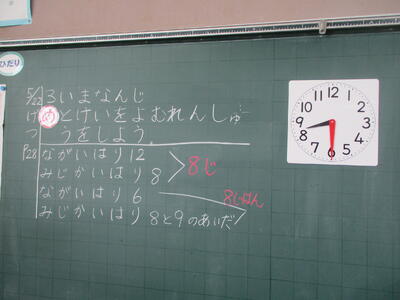 ひだり
5/22 3 いまなんじ
け め とけいをよむれんしゅ
つ うをしよう。
P28 ながいはり12
みじかいはり8 8じ
ながいはり6
みじかいはり8と9のあいだ 8じはん
12
11 1
10 2
9 3
8 4
7 5
6